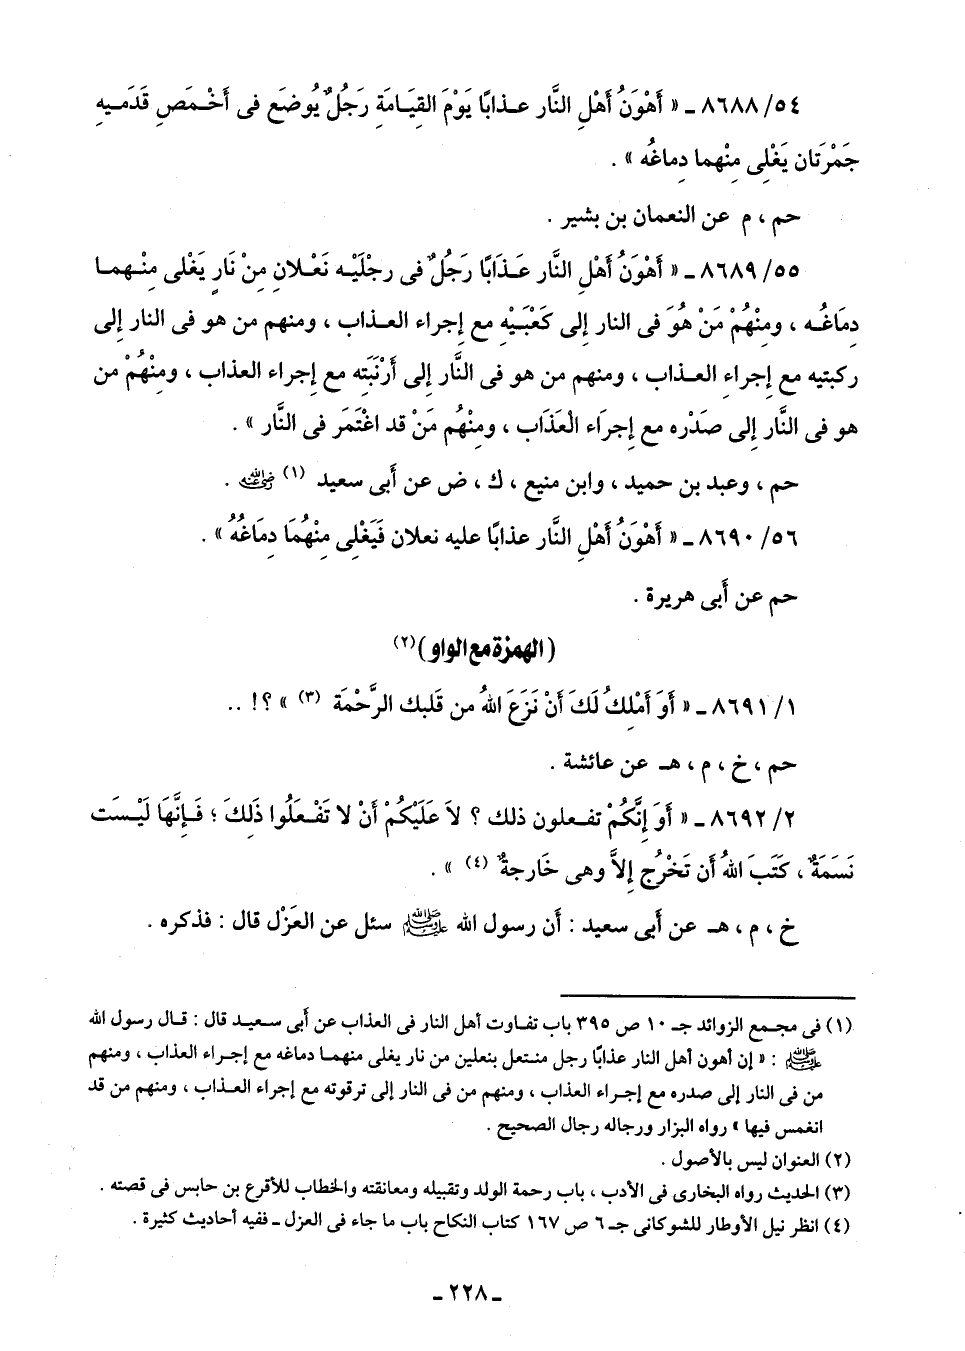 ٥٤/ ٨٦٨٨ ـ « أَهْوَنُ أَهْلِ النَّار عـذابًا يَوْمَ القِيَـامَةِ رَجُلٌ يُوضَع فى أَخْـمَصِ قَدَمـيهِ
جَمْرَتَان يَغْلِى مِنْهما دِماغُه » .
حم ، م عن النعمان بن بشير .
٥٥/ ٨٦٨٩ ـ « أَهْوَنُ أَهْلِ النَّار عَـذَابًا رَجُلٌ فى رِجْلَيْـه نَعْـلانِ مِنْ نَارٍ يَغْلى مِنْـهمـا
دِمَاغُـه ، ومِنْهُمْ مَنْ هُوَ فى النار إلى كَعْبَـيْهِ مع إجراء العـذاب ، ومنهم من هو فى النار إلى
ركبتيه مع إجراءِ العـذاب ، ومنهم من هو فى النَّار إلى أَرْنَبَتِه مع إجراء العذاب ، ومِنْهُمْ من
هو فى النَّار إلى صَدْرِه مع إجرَاء الْعَذَاب ، ومِنْهُم مَنْ قد اغْتَمَرَ فى النَّار » .
حم ، وعبد بن حميد ، وابن منيع ، ك ، ض عن أبى سعيد (١) رضي الله عنه .
٥٦/ ٨٦٩٠ ـ « أَهْوَنُ أَهْلِ النَّار عذابًا عليه نعلان فَيَغْلِى مِنْهُمَا دِمَاغُهُ » .
حم عن أبى هريرة .
(الهمزة مع الواو) (٢)
١/ ٨٦٩١ ـ « أَوَ أَمْلِكُ لَكَ أَنْ نَزَعَ اللهُ من قَلبك الرَّحْمَة (٣) » ؟! ..
حم ، خ ، م ، هـ عن عائشة .
٢/ ٨٦٩٢ ـ « أَوَ إنَّكُمْ تفـعلون ذلك ؟ لاَ عَلَيْكُمْ أَنْ لا تَفْـعَلُوا ذَلِكَ ؛ فَـإِنَّهَا لَيْسَت
نَسَمَةٌ ، كَتَبَ اللهُ أَن تَخْرُج إلاَّ وهى خَارِجةٌ (٤) » .
خ ، م ، هـ عن أبى سعيد : أن رسول الله ﷺ سئل عن العَزْل قال : فذكره .
(١) فى مجمع الزوائد جـ ١٠ ص ٣٩٥ باب تفاوت أهل النار فى العذاب عن أبى سـعيـد قال : قـال رسول الله
ﷺ : « إن أهون أهل النار عذابًا رجل منـتعل بنعلين من نار يغلى منهمـا دماغه مع إجـراء العذاب ، ومنهم
من فى النار إلى صدره مع إجـراء العذاب ، ومنهم من فى النار إلى ترقوته مع إجراء العـذاب ، ومنهم من قد
انغمس فيها » رواه البزار ورجاله رجال الصحيح .
(٢) العنوان ليس بالأصول .
(٣) الحديث رواه البخارى فى الأدب ، باب رحمة الولد وتقبيله ومعانقته والخطاب للأقرع بن حابس فى قصته .
(٤) انظر نيل الأوطار للشوكانى جـ ٦ ص ١٦٧ كتاب النكاح باب ما جاء فى العزل ـ ففيه أحاديث كثيرة .
ـ ٢٢٨ ـ